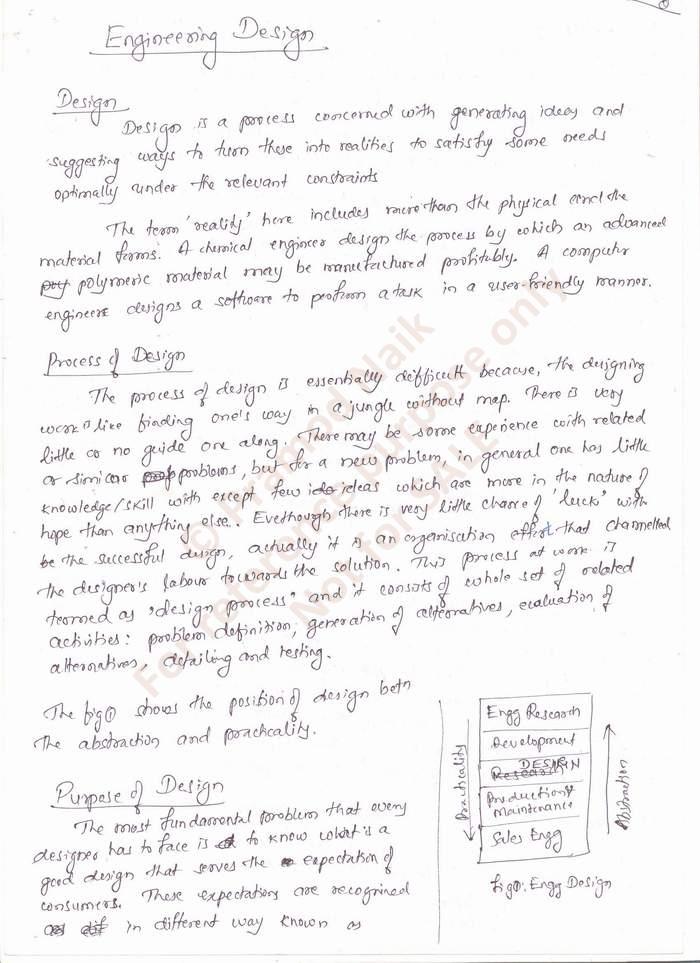 Engineering Design
Design
Design is a process concerned with generating ideas and
suggesting ways to turn these into realities to satisfy some needs
optimally under the relevant constraints
The term 'reality' here includes more than the physical and the
material forms. A chemical engineer design the process by which an advanced
poly polymeric material may be manufactured profitably. A computer
engineers designs a software to perform a task in a user-friendly manner.
Process of Design
The process of design is essentially difficult because, the designing
work is like finding one's way in a jungle without map. There is very
little or no guide one along. There may be some experience with related
or similar problems, but for a new problem, in general one has little
knowledge/skill with except few ideas which are more in the nature of
hope than anything else. Eventhough there is very little chance of 'luck' with
be the successful design, actually it is an organisation effort that channelled
the designer's labour towards the solution. This process at work is
termed as 'design process' and it consists of whole set of related
activities: problem definition, generation of alternatives, evaluation of
alternatives, detailing and testing.
The fig① shows the position of design betn
The abstraction and practicality.
Purpose of Design
The most fundamental problem that every
designer has to face is to know what is a
good design that serves the expectation of
consumers. These expectations are recognised
in different way known as
Practicality
Engg Research
Development
Research DESIGN
Production &
Maintenance
Sales Engg
Abstraction
fig①. Engg Design
© Pramod Naik
For reference purpose only
Not for SALE